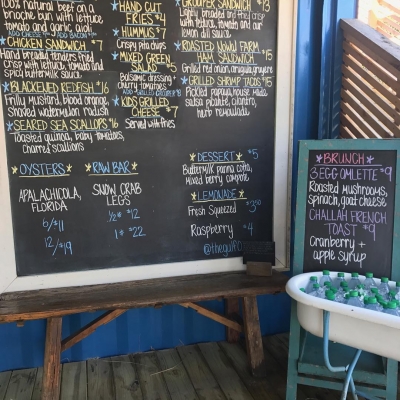 100% Natural beef on a
brioche bun with lettuce
tomato and garlic aioli
CHICKEN SANDWICH $7
Hand breaded tenders fried
crisp with lettuce, tomato and
spicy buttermilk sauce
BLACKENED REDFISH $16
Frilly mustard, blood orange,
Shaved watermelon radish
SEARED SEA SCALLOPS $16
Toasted quinoa, baby tomatoes,
Charred scallions
HAND CUT
FRIES $4
HUMMUS $7
Crispy pita chips
MIXED GREEN
SALAD $5
Balsamic dressing +
cherry tomatoes
KIDS GRILLED
CHEESE $7
Served with fries
GROUPER SANDWICH $13
Lightly breaded and fried crisp
with lettuce, tomato and our
lemon dill sauce
ROASTED NCWV FARM
HAM SANDWICH $15
Grilled red onion, arugula, gruyere
GRILLED SHRIMP TACOS $15
Pickled papaya, house made
salsa picante, cilantro,
herb remoulade
OYSTERS
APALACHICOLA,
FLORIDA
6/$11
12/$19
RAW BAR
SNOW CRAB
LEGS
½# $12
1# $22
DESSERT $5
Buttermilk panna cotta,
Mixed berry compote
LEMONADE
Fresh Squeezed $3.50
Raspberry $4
BRUNCH
3 EGG OMLETTE $9
Roasted mushrooms,
spinach, goat cheese
CHALLAH FRENCH
TOAST $9
Cranberry +
apple syrup